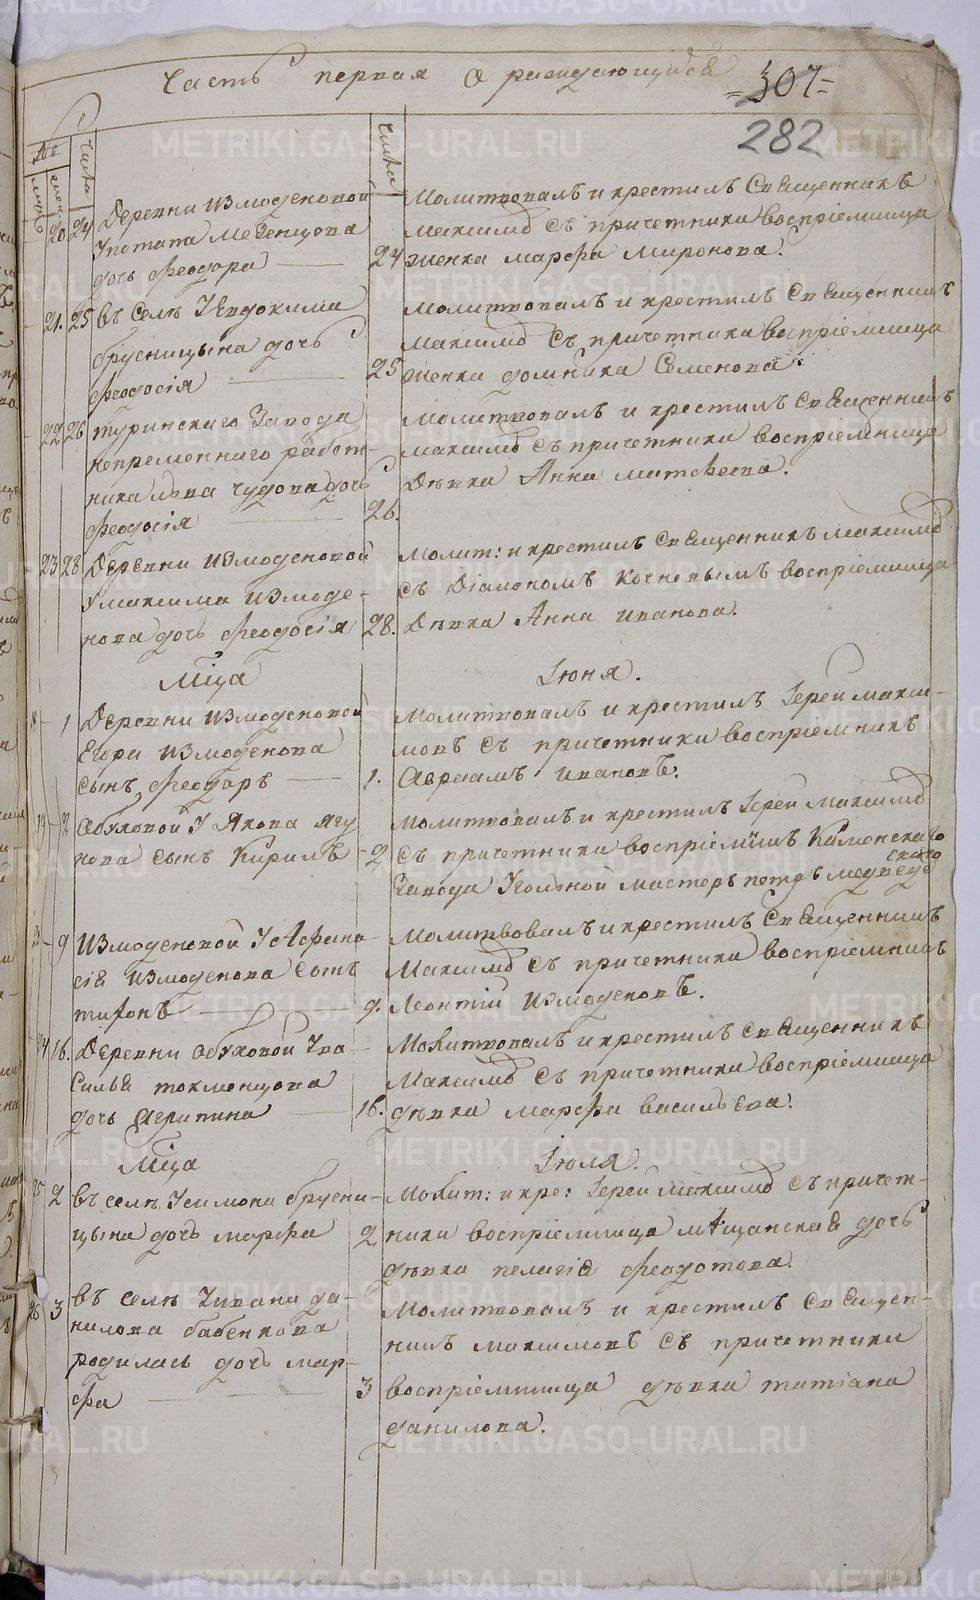 Часть первая о раждающихся
=307=
282
№
муж:
жен:
числа
числа
20 24 Деревни Измоденовой
Ипотапа Мезенцова
дочь Феодора
24
Молитвовалъ и крестилъ Священникъ
Максимовъ съ причетники восприемница
женка Марфа Миронова.
21. 25 Въ селѣ У Евдокима
Брусницына дочь
Феодосія
25
Молитвовалъ и крестилъ Священникъ
Максимовъ съ причетники восприемница
женка Домника Семенова.
22 26 Туринскаго Завода
непременнаго работ-
ника Льва Чудова дочь
Феодосія
26.
Молитвовалъ и крестилъ Священникъ
Максимовъ съ причетники восприемница
Дѣвка Анна Матвеева.
23 28 Деревни Измоденовой
У максима Измоде-
нова дочь Феодосія
28.
Молит: и крестилъ Священникъ Максимовъ
съ Діакономъ Кочневымъ восприемница
Дѣвка Анна Иванова.
Мѣца
Іюня.
18 1 Деревни Измоденовой
Егора Измоденова
сынъ Феодоръ
1.
Молитвовалъ и крестилъ Іерей Макси-
мовъ съ причетники восприемникъ
Авраамъ Ивановъ.
19 2 Обуховой У Якова Ягу
нова сынъ Кирилъ
2
Молитвовалъ и крестилъ Іерей Максимовъ
съ причетники восприем: былъ Каменскаго
Завода Угольной мастеръ Петръ Медведе
скаго
20 9 Измоденовой У Афана-
сія Измоденова сынъ
Тихонъ
9.
Молитвовалъ и крестилъ Священникъ
Максимовъ съ причетники восприемникъ
Леонтій Измоденовъ.
24 16. Деревни Обуховой Ува-
силья Токменцова
дочь Агрипина
16.
Молитвовалъ и крестилъ Священникъ
Максимовъ съ причетники восприемница
дѣвка Марфа Васильева.
Мѣца
Іюля.
25 2 въ селѣ Усимона Брусни-
цына дочь Марфа
2
Молит: и кре: Іерей Максимовъ съ причет-
ники восприемница мѣщанская дочь
дѣвка Пелагія Феодотова.
26 3 въ селѣ Уивана Да-
нилова Бабенкова
родилась дочь Мар-
фа
3
Молитвовалъ и крестилъ Священ-
никъ Максимовъ съ причетники
восприемница дѣвка Татіана
Данилова.
METRIKI.GASO-URAL.RU